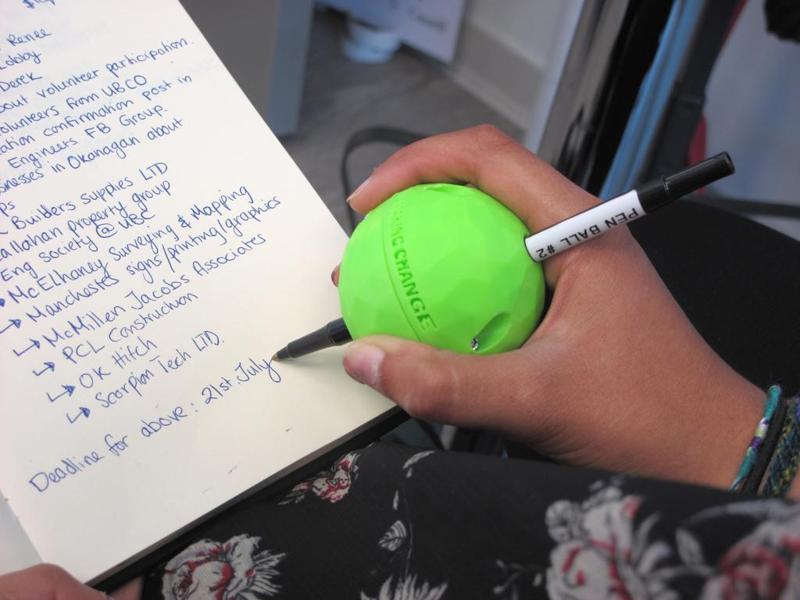 Renee
Derek
about volunteer participation.
volunteers from UBCO
confirmation post in
Engineers FB Group.
in Okanagan about
Builders Supplies LTD
Callahan property group
Eng society @ UBC
McElhaney Surveying & Mapping
→ Manchester signs/printing/graphics
→ McMillen Jacobs Associates
→ PCL Construction
→ OK Hitch
→ Scorpion Tech LTD.
Deadline for above: 21st. July
CHANGE
PEN BALL #2